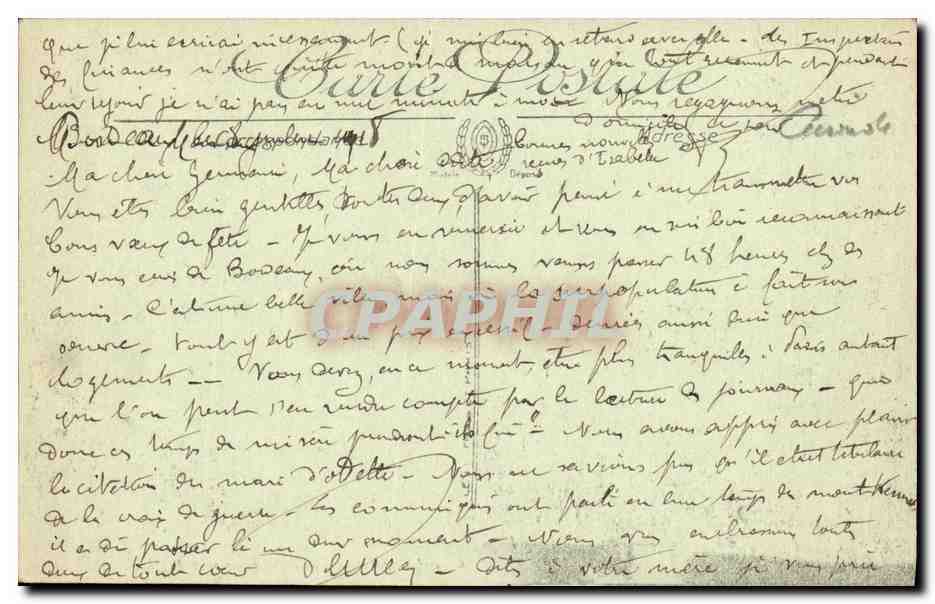 que je lui écrirai incessamment (je suis bien en retard avec elle - des Inspecteurs
des finances n'ont quitté mon et pendant
leur séjour je n'ai pas eu une minute à moi. Nous regagnons notre
domicile
Carte Postale
Bordeaux 1918
Adresse
bonnes nouvelles
reçues d'Isabelle
Ma chère Germaine, Ma chère
Modèle Déposé
Vous êtes bien gentilles, toutes deux, d'avoir pensé à me transmettre vos
bons vœux de fête - Je vous en remercie et vous en suis bien reconnaissant
Je vous écris de Bordeaux, où nous sommes venus passer 48 heures chez des
amis. C'est une belle ville, mais où la surpopulation a fait son
œuvre - tout y est d'un prix - denrées, aussi bien que
logements -- Vous devez, en ce moment, être plus tranquilles à Paris autant
que l'on peut s'en rendre compte par la lecture des journaux -
donc ces temps de misère prendront-ils fin? - Nous avons appris avec plaisir
la citation du mari d'Odette - Nous ne savions pas qu'il était titulaire
de la croix de guerre - Les communiqués ont parlé en leur temps du mont Kemmel
il a dû passer là un dur moment - Nous vous embrassons toutes
deux de tout cœur - dites à votre mère je vous prie
CPAPHIL